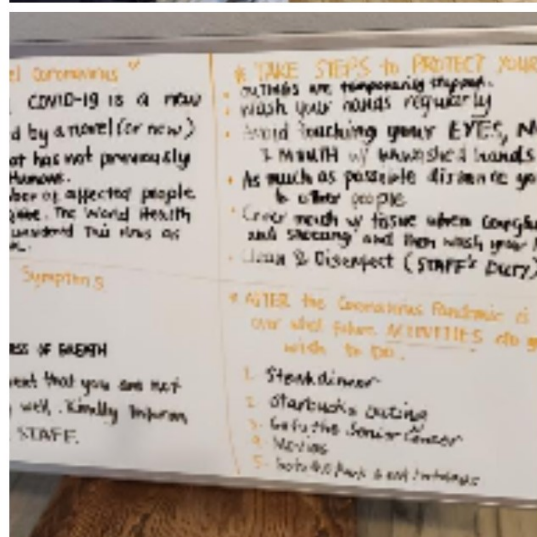 el Coronavirus "
COVID-19 IS a new
d by a novel (or new)
at has not previously
Humans.
ber of affected people
The World Health
considered This virus as
Symptoms
ESS OF BREATH
event that you are not
well, Kindly Inform
STAFF.
* TAKE STEPS to PROTECT YOUR
• OUTINGS are temporarily
• Wash your hands regularly
• Avoid touching your EYES, N
& MOUTH w/ unwashed hands
• As much as possible distance yo
to other people
• Cover mouth w/ tissue when
and sneezing and then wash your
• Clean & Disenfect (STAFF's DUTY)
* AFTER the Coronavirus Pandemic is
over what future ACTIVITIES do y
wish to DO.
1. Steak dinner
2. Starbucks outing
3. Go to the Senior Center
4. Movies
5. Go to the Park &